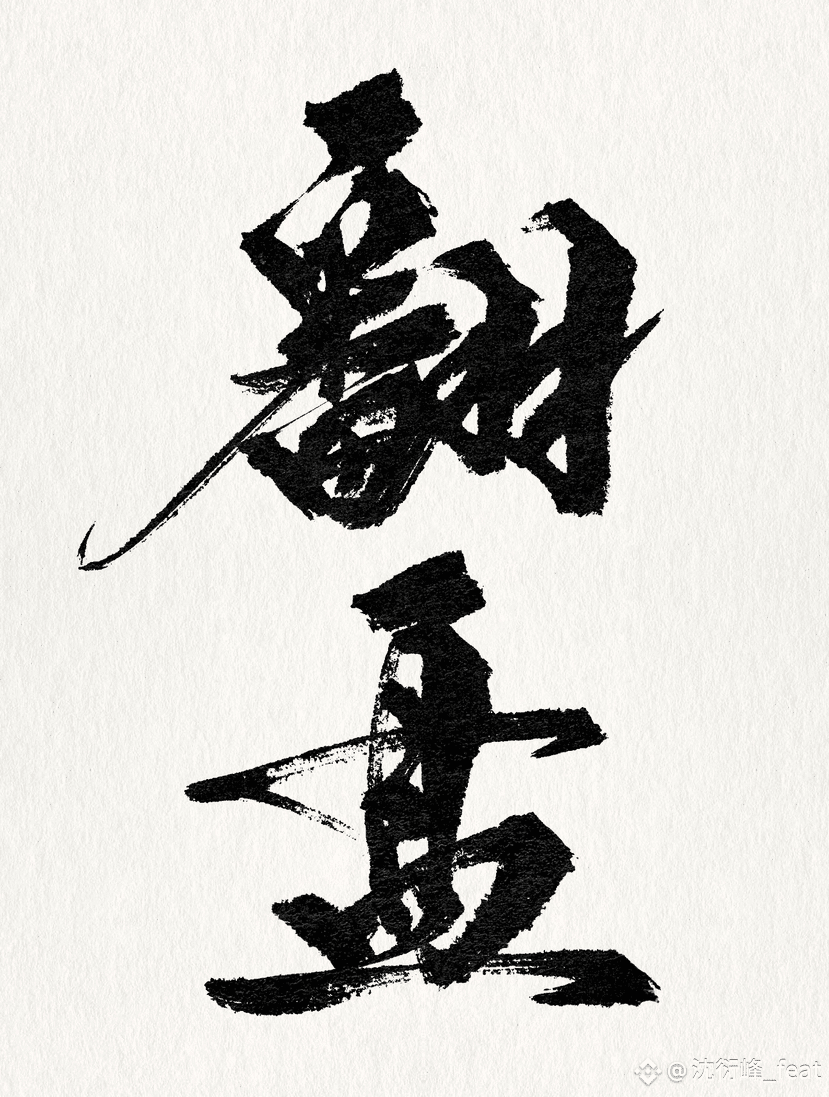 翻盂
@沈衍峰_feat